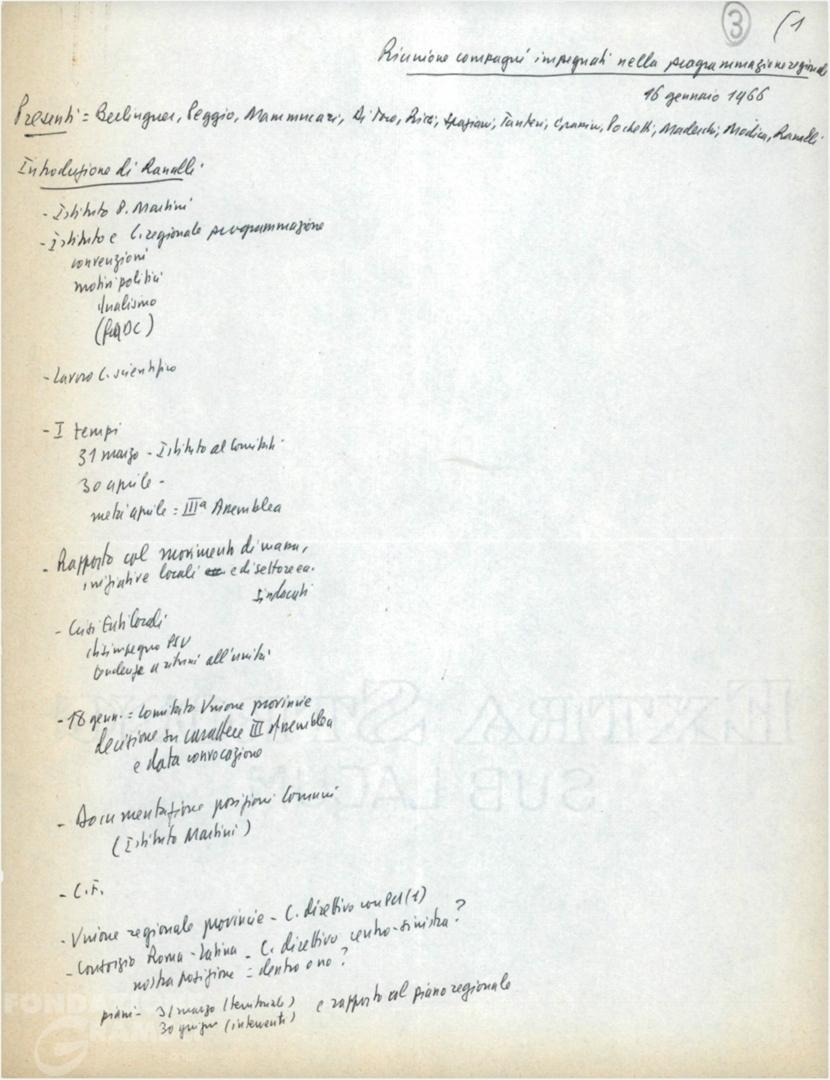 3 (1
Riunione compagni impegnati nella programmazione regionale
16 gennaio 1966
Presenti = Berlinguer, Peggio, Mammucari, Di Toro, Ricci, Spaziani, Tanteri, Gramm, Pochetti, Maderchi, Modica, Ranalli
Introduzione di Ranalli
- Istituto P. Martini
- Istituto e C. regionale programmazione
convenzioni
motivi politici
dualismo
(DC)
- Lavoro C. scientifico
- I tempi
31 marzo - Istituto al Comitato
30 aprile -
metà aprile = IIIª Assemblea
- Rapporto col movimento di massa,
iniziative locali e di settore ea.
Sindacati
- Crisi Enti Locali
disimpegno PSU
tendenze a ritorni all'unità
- 18 genn. = Comitato Unione provincie
decisione su carattere III Assemblea
e data convocazione
- Documentazione posizioni Comuni
(Istituto Martini)
- C.F.
- Unione regionale provincie - C. direttivo con PCI (1)
- Consorzio Roma-Latina - C. direttivo centro-sinistra?
nostra posizione = dentro o no?
piani - 31 marzo (territoriale)
30 giugno (interventi) e rapporto col piano regionale
EXTRA STRONG
SUB LACUM
FONDAZIONE
GRAMSCI